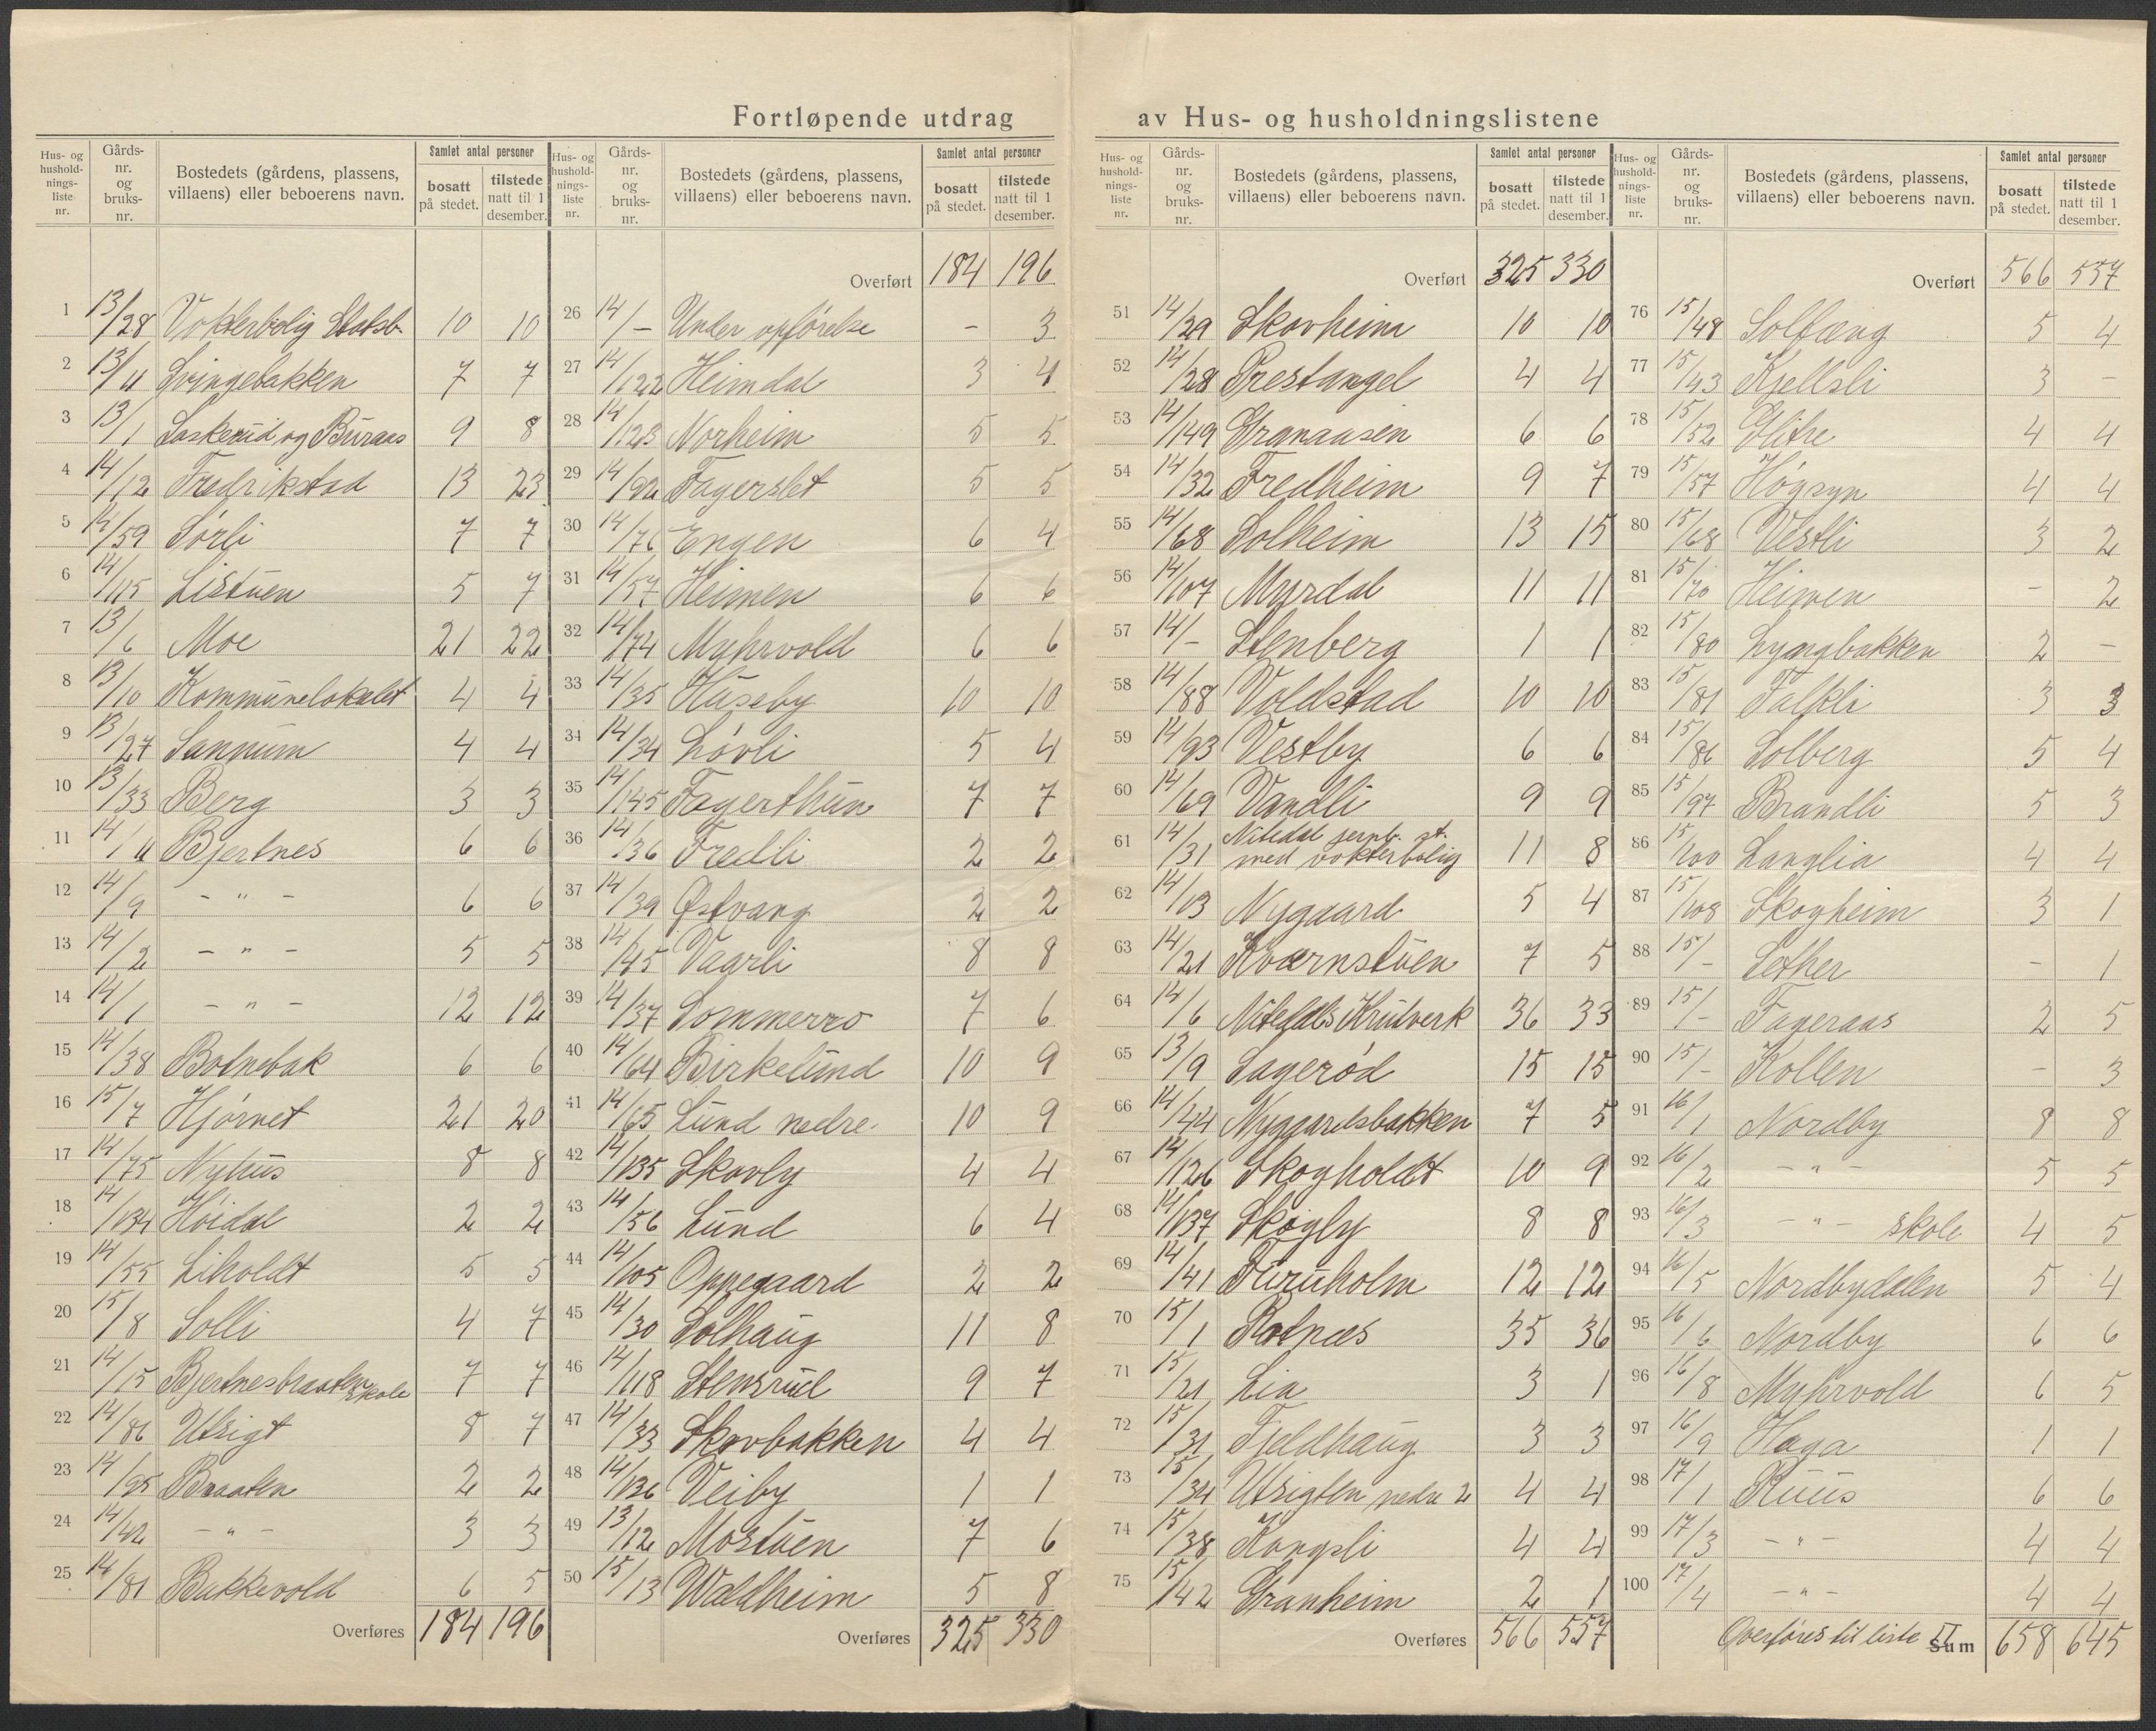 Fortløpende utdrag av Hus- og husholdningslistene
Hus- og hushold-nings-liste nr. Gårds-nr. og bruks-nr. Bostedets (gårdens, plassens, villaens) eller beboerens navn. Samlet antal personer bosatt på stedet. tilstede natt til 1 desember.
1 13/28 Vokterbolig Statsb. 10 10
2 13/4 Svingebakken 7 7
3 13/1 Laskerud og Buraas 9 8
4 14/12 Fredrikstad 13 23
5 14/59 Sørli 7 7
6 14/115 Listuen 5 7
7 13/6 Moe 21 22
8 13/10 Kommunelokalet 4 4
9 13/27 Sannum 4 4
10 13/33 Berg 3 3
11 14/4 Bjertnes 6 6
12 14/9 - " - 6 6
13 14/2 - " - 5 5
14 14/1 - " - 12 12
15 14/38 Botnebak 6 6
16 15/7 Hjørnet 21 20
17 14/75 Nyhus 8 8
18 14/134 Høidal 2 2
19 14/55 Liholdt 5 5
20 15/8 Solli 4 7
21 14/15 Bjertnesbraaten skole 7 7
22 14/86 Utsigt 8 7
23 14/95 Braaten 2 2
24 14/42 - " - 3 3
25 14/81 Bukkevold 6 5
Overføres 184 196
Hus- og hushold-nings-liste nr. Gårds-nr. og bruks-nr. Bostedets (gårdens, plassens, villaens) eller beboerens navn. Samlet antal personer bosatt på stedet. tilstede natt til 1 desember.
Overført 184 196
26 14/- Under opførelse - 3
27 14/122 Heimdal 3 4
28 14/123 Norheim 5 5
29 14/92 Fagerslet 5 5
30 14/76 Engen 6 4
31 14/57 Heimen 6 6
32 14/74 Myhrvold 6 6
33 14/35 Huseby 10 10
34 14/34 Løvli 5 4
35 14/145 Fagerthun 7 7
36 14/36 Fredli 2 2
37 14/39 Østvang 2 2
38 14/45 Vaarli 8 8
39 14/37 Sommerro 7 6
40 14/64 Birkelund 10 9
41 14/65 Lund nedre 10 9
42 14/135 Skovly 4 4
43 14/56 Lund 6 4
44 14/105 Oppegaard 2 2
45 14/30 Solhaug 11 8
46 14/118 Stensrud 9 7
47 14/33 Skovbakken 4 4
48 14/136 Veiby 1 1
49 13/12 Mostuen 7 6
50 15/13 Waldheim 5 8
Overføres 325 330
Hus- og hushold-nings-liste nr. Gårds-nr. og bruks-nr. Bostedets (gårdens, plassens, villaens) eller beboerens navn. Samlet antal personer bosatt på stedet. tilstede natt til 1 desember.
Overført 325 330
51 14/29 Skovheim 10 10
52 14/28 Prestangel 4 4
53 14/149 Granaasen 6 6
54 14/32 Fredheim 9 7
55 14/68 Solheim 13 15
56 14/107 Myrdal 11 11
57 14/- Stenberg 1 1
58 14/88 Voldstad 10 10
59 14/93 Vestby 6 6
60 14/69 Vandli 9 9
61 14/31 Nitedal jernb. st. med vokterbolig 11 8
62 14/13 Nygaard 5 4
63 14/21 Kværnstuen 7 5
64 14/6 Nitedals Krutverk 36 33
65 13/9 Sagerød 15 15
66 14/44 Nygaardsbakken 7 5
67 14/126 Skogholdt 10 9
68 14/137 Skogly 8 8
69 14/41 Furuholm 12 12
70 15/1 Rotnæs 35 36
71 15/21 Lia 3 1
72 15/31 Fjeldhaug 3 3
73 15/34 Utsigten nedre 2 4 4
74 15/38 Kongsli 4 4
75 15/42 Granheim 2 1
Overføres 566 557
Hus- og hushold-nings-liste nr. Gårds-nr. og bruks-nr. Bostedets (gårdens, plassens, villaens) eller beboerens navn. Samlet antal personer bosatt på stedet. tilstede natt til 1 desember.
Overført 566 557
76 15/48 Solfæng 5 4
77 15/43 Kjellsli 3 -
78 15/52 Glitre 4 4
79 15/57 Høgsyn 4 4
80 15/68 Vestli 3 2
81 15/70 Heimen - 2
82 15/80 Lyngbakken 2 -
83 15/81 Falkli 3 3
84 15/86 Solberg 5 4
85 15/97 Brandli 5 3
86 15/100 Langlia 4 4
87 15/108 Skogheim 3 1
88 15/- Sether - 1
89 15/- Fageraas 2 5
90 15/- Kollen - 3
91 16/1 Nordby 8 8
92 16/2 - " - 5 5
93 16/3 - " - skole 4 5
94 16/5 Nordbydalen 5 4
95 16/6 Nordby 6 6
96 16/8 Myhrvold 6 5
97 16/9 Haga 1 1
98 17/1 Ruus 6 6
99 17/3 - " - 4 4
100 17/4 - " - 4 4
Overføres til liste II Sum 658 645